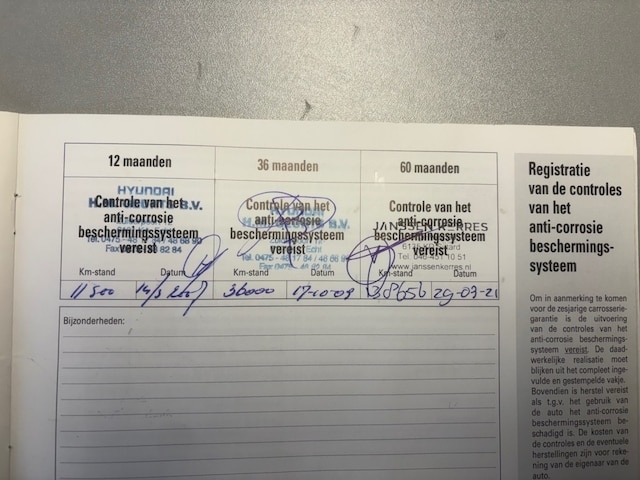 12 maanden
36 maanden
60 maanden
HYUNDAI
B.V.
Controle van het
anti-corrosie
beschermingssysteem
vereist
Tel. 0475 - 48
82 84
Km-stand Datum
11500
Controle van het
anti-corrosie
beschermingssysteem
vereist
B.V.
Tel. 0475 - 48 17 84 / 48 66
Fax 0475 - 48 82 84
Km-stand Datum
36000 17-10-09
Controle van het
anti-corrosie
JANSSEN KERRES
beschermingssysteem
vereist
Tel. 046-451 10 51
www.janssenkerres.nl
Km-stand Datum
29-03-21
Bijzonderheden:
Registratie
van de controles
van het
anti-corrosie
beschermings-
systeem
Om in aanmerking te komen
voor de zesjarige carrosserie-
garantie is de uitvoering
van de controles van het
anti-corrosie beschermings-
systeem vereist. De daad-
werkelijke realisatie moet
blijken uit het compleet inge-
vulde en gestempelde vakje.
Bovendien is herstel vereist
als t.g.v. het gebruik van
de auto het anti-corrosie
beschermingssysteem be-
schadigd is. De kosten van
de controles en de eventuele
herstellingen zijn voor reke-
ning van de eigenaar van de
auto.